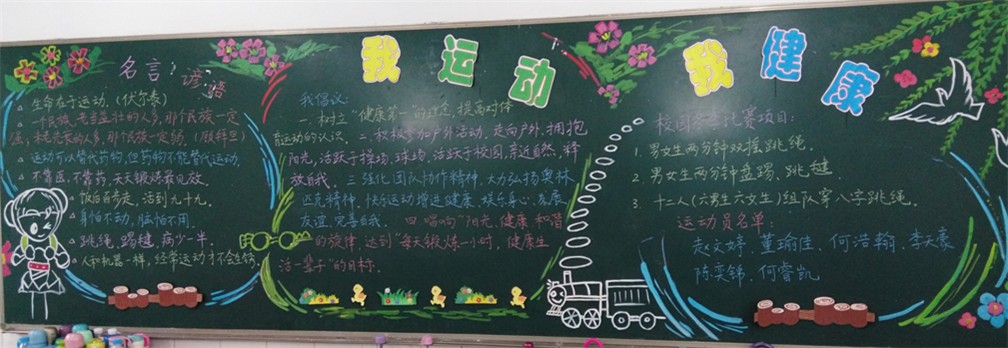 我运动
我健康
名言?
谚语
△ 生命在于运动.(伏尔泰)
△ 一个民族,老当益壮的人多,那个民族一定
强;未老先衰的人多,那个民族一定弱.(顾拜旦)
△ 运动可以替代药物,但药物不能替代运动.
△ 不靠医,不靠药,天天锻炼最见效.
△ 饭后百步走,活到九十九.
△ 身怕不动,脑怕不用.
△ 跳绳,踢毽,病少一半.
△ 人和机器一样,经常运动才不会生锈.
我倡议:
一.树立"健康第一"的理念,提高对体
育运动的认识.二.积极参加户外活动,走向户外,拥抱
阳光,活跃于操场,球场,活跃于校园,亲近自然,释
放自我.三.强化团队协作精神,大力弘扬奥林
匹克精神,快乐运动增进健康,娱乐身心,发展
友谊,完善自我.四.唱响"阳光,健康和谐
的旋律,达到"每天锻炼一小时,健康生
活一辈子"的目标.
校园冬季比赛项目:
1.男女生两分钟双摇跳绳.
2.男女生两分钟盘踢、跳毽.
3.十二人(六男生六女生)组队穿八字跳绳.
运动员名单:
赵文婷.董瑜佳.何浩翰.李天豪
陈奕锦.何睿凯